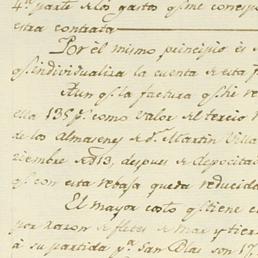 4ª parte de los gastos qᵉ me corresp
esta contrata
Por el mismo principio es
qᵉ individualiza la cuenta de esta f
Aun qᵉ la factura qᵉ he re
ella 135 p.ˢ como valor del tercio
de los Almacenes de Dⁿ Martin Villa
ciembre de 813, despues de depocitad
qᵉ con esta rebaja queda reducida
El mayor costo qᵉ tiene e
por razon de fletes de Mar y tier
á su partida pª San Blas son 17